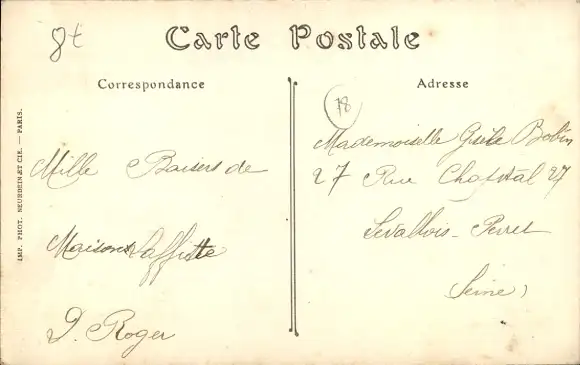 8t
Carte Postale
Correspondance
Adresse
78
IMP. PHOT. NEURDEIN ET CIE. — PARIS.
Mille Baisers de
Maisons Laffitte
D. Roger
Mademoiselle Gisèle Bobin
27 Rue Chaptal 27
Levallois-Perret
Seine)